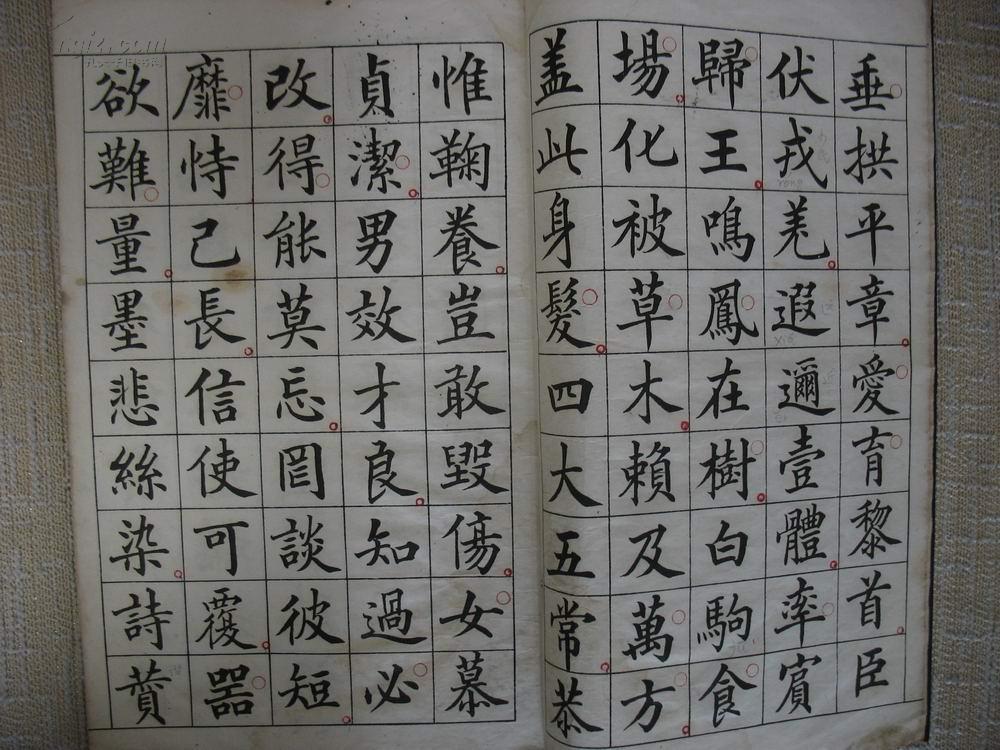 垂拱平章愛育黎首臣
伏戎羌遐邇壹體率賓
歸王鳴鳳在樹白駒食
場化被草木賴及萬方
盖此身髮四大五常恭
惟鞠養豈敢毀傷女慕
貞潔男效才良知過必
改得能莫忘罔談彼短
靡恃己長信使可覆器
欲難量墨悲絲染詩賁